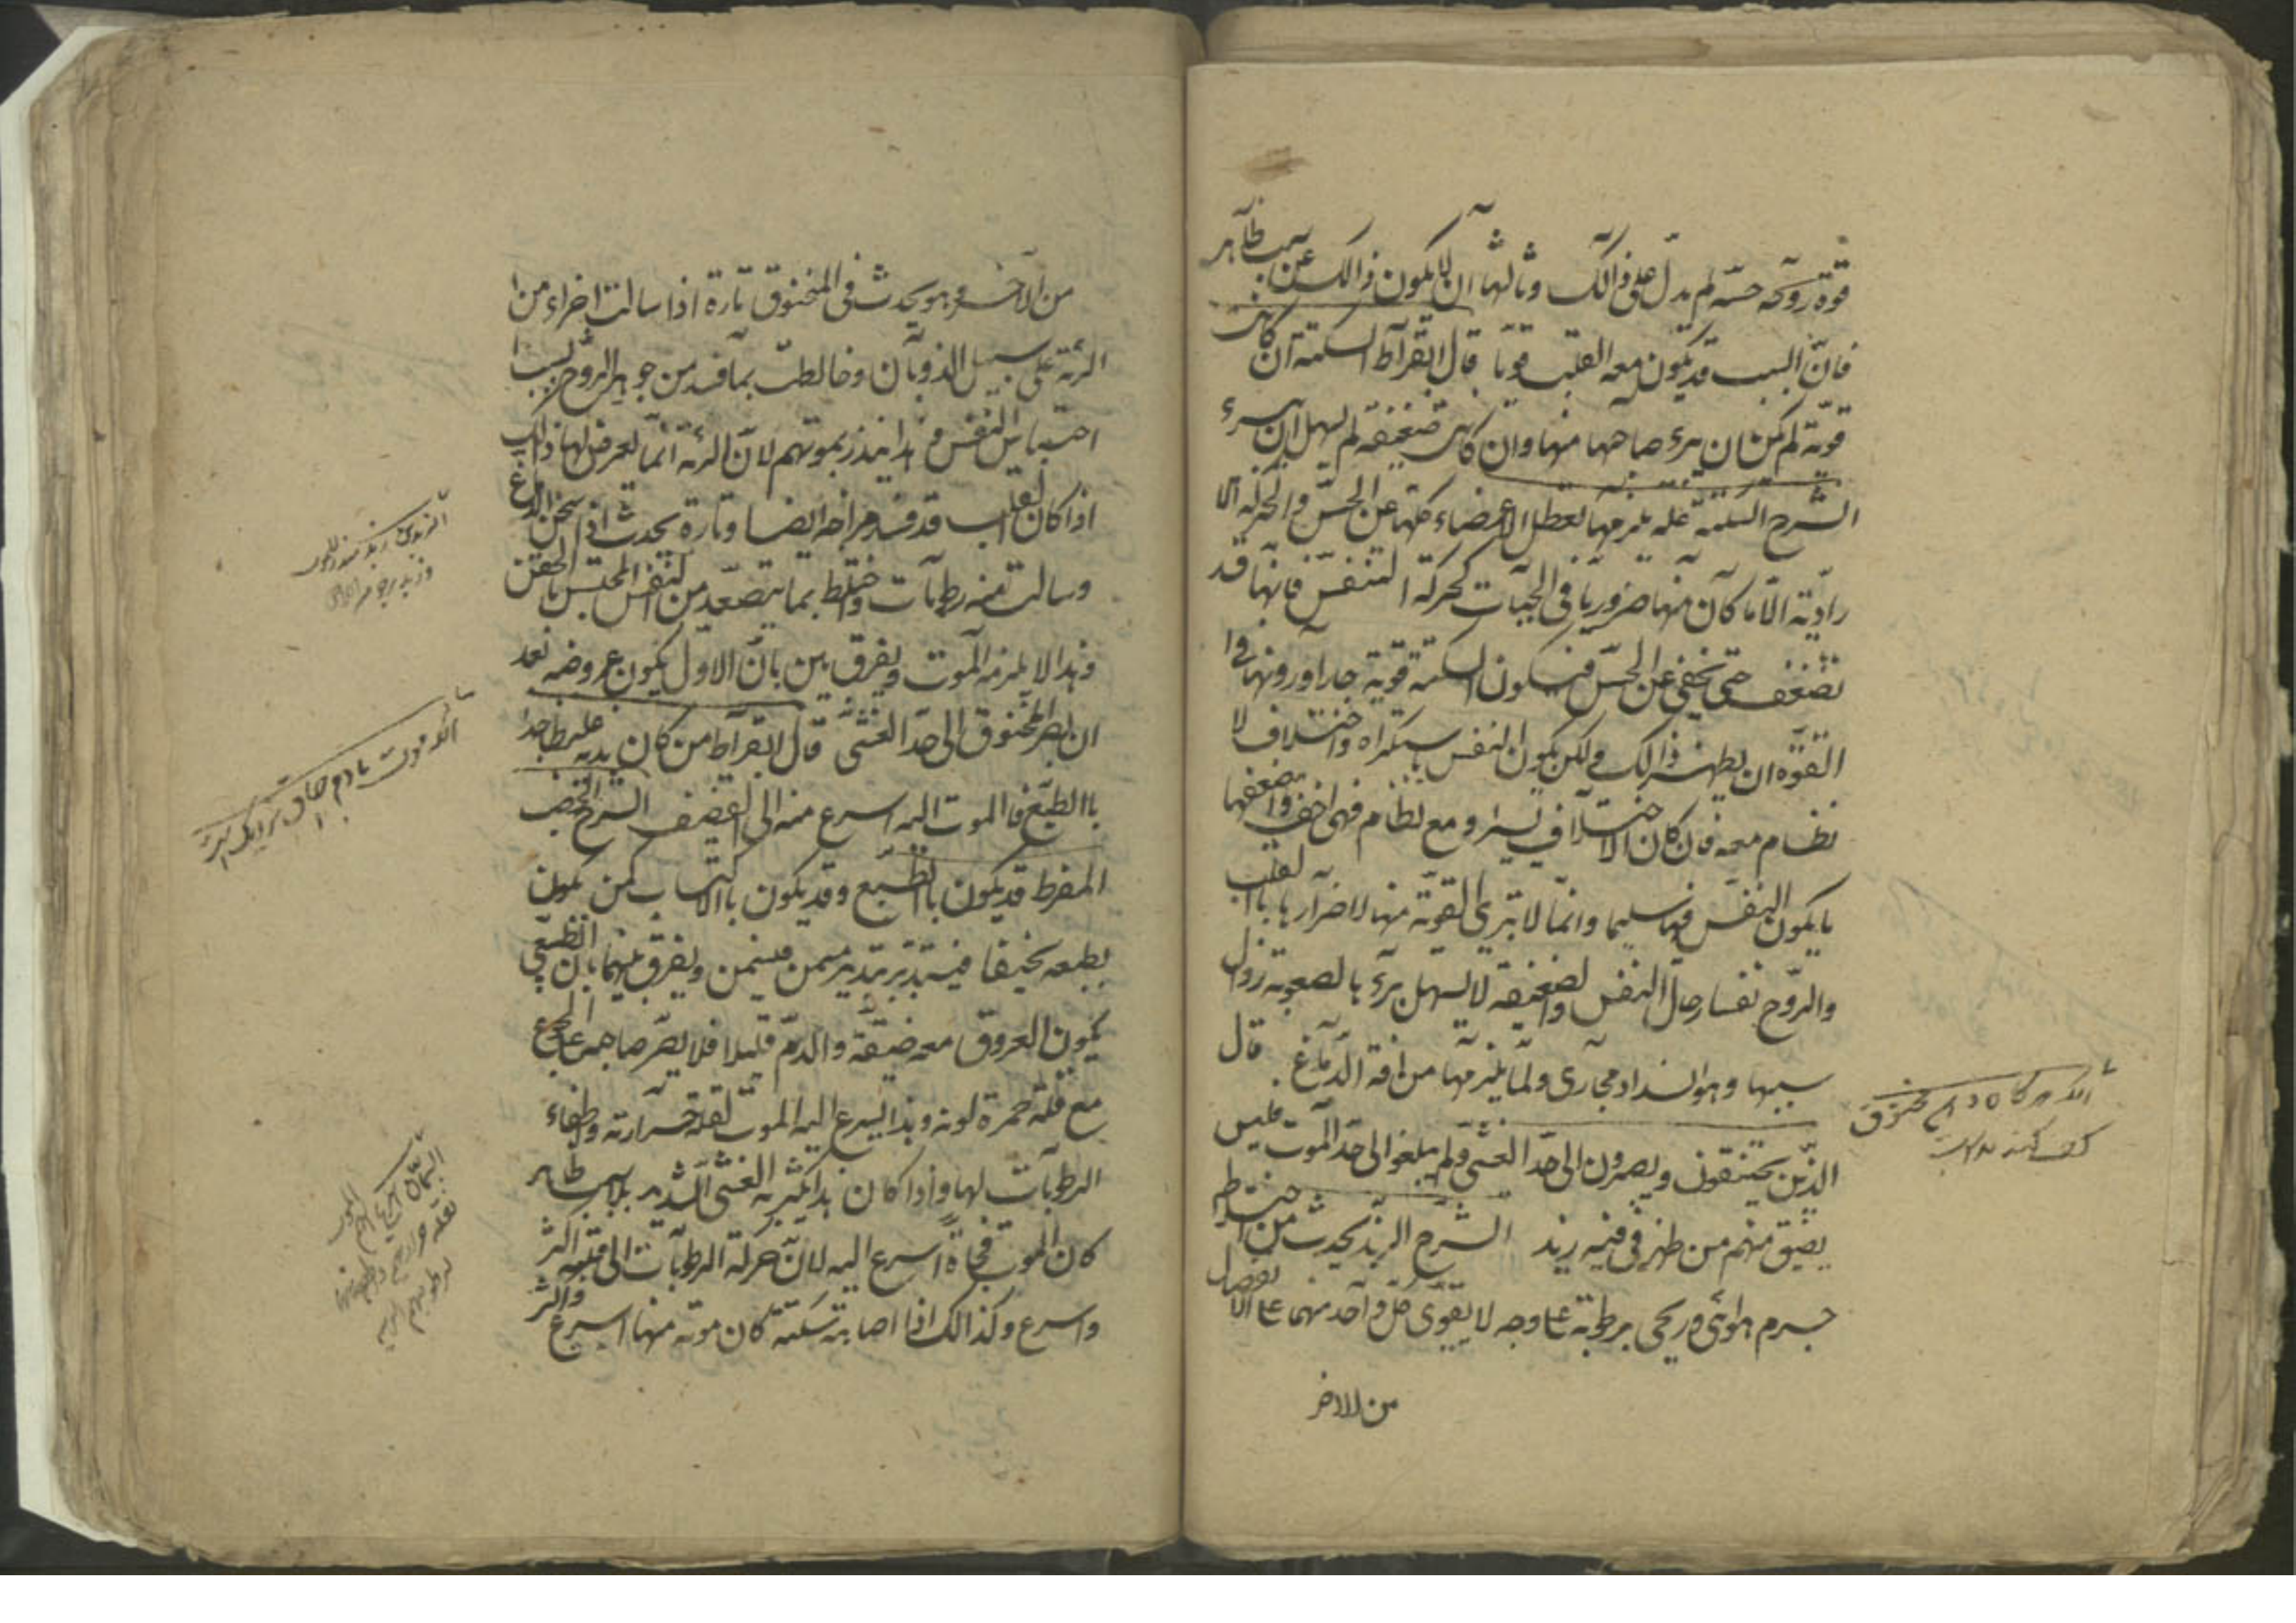 قوة روحه حسه لم يدل على ذالك وثالثها ان لا يكون ذالك عن سبب ظاهر
فان السبب قد يكون معه القلب قويا قال ابقراط السكتة ان كانت
قوية لم يكن ان يبرء صاحبها منها وان كانت ضعيفة لم يسهل ان يبرء
الشرح السكتة علة يلزمها تعطل الاعضاء كلها عن الحس والحركة الا
رادية الا ما كان منها ضروريا في الحيات كحركة التنفس فانها قد
تضعف حتى يخفى عن الحس فيكون السكتة قوية جدا ودونها في
القوة ان يظهر ذالك ولكن يكون النفس باستكراه واختلاف لا
نظام معه فان كان الاختلاف يسيرا ومع نظام فهي اخف واضعفها
ما يكون النفس فيها سليما وانما لا تبرى القوية منها لاضرارها بالقلب
والروح لفساد حال النفس والضعيفة لا يسهل برء بالصعوبة زوال
سببها وهو انسداد مجارى ولما يلزمها من افة الدماغ قال
الذين يختنقون ويصيرون الى حد الغشى ولم يبلغوا الى حد الموت فليس
يفيق منهم من ظهر في فمه زبد الشرح الزبد يحدث من اختلاط
جرم هوائى وريحى برطوبة على وجه لا يقوى كل واحد منهما على الانفصال
من الاخر
من الاخر وهو يحدث في المخنوق تارة اذا سالت اجزاء من
الرئة على سبيل الذوبان وخالطت بما فسد من جوهر الروح بسبب
احتباس النفس وهذا ينذر بموتهم لان الرئة انما يعرض لها ذالك
اذا كان القلب قد فسد مزاجه ايضا وتارة يحدث اذا سخن الدماغ
وسالت منه رطوبات واختلط بما يتصعد من النفس المحتبس بالخنق
وهذا لا يلزمه الموت ويفرق بين بان الاول يكون عروضه بعد
ان يصير المخنوق الى حد الغشى قال ابقراط من كان بدنه غليظا جدا
بالطبع فالموت اليه اسرع منه الى القضيف الشرح الخصب
المفرط قد يكون بالطبع وقد يكون بالاكتساب كمن يكون
بطبعه نحيفا فيتدبر بتدبير مسمن فيسمن ويفرق بينهما بان الطبعى
يكون العروق معه ضيقة والدم قليلا فلا يصبر صاحبه على الجوع
مع قلة حمرة لونه وهذا يسرع اليه الموت لقلة حرارته واطفاء
الرطوبات لها واذا كان هذا يكثر به الغشى الشديد بلا سبب ظاهر
كان الموت فجاة اسرع اليه لان حركة الرطوبات الى قلبه اكثر
واسرع وكذالك اذا اصابته سكتة كان موته منها اسرع واكثر